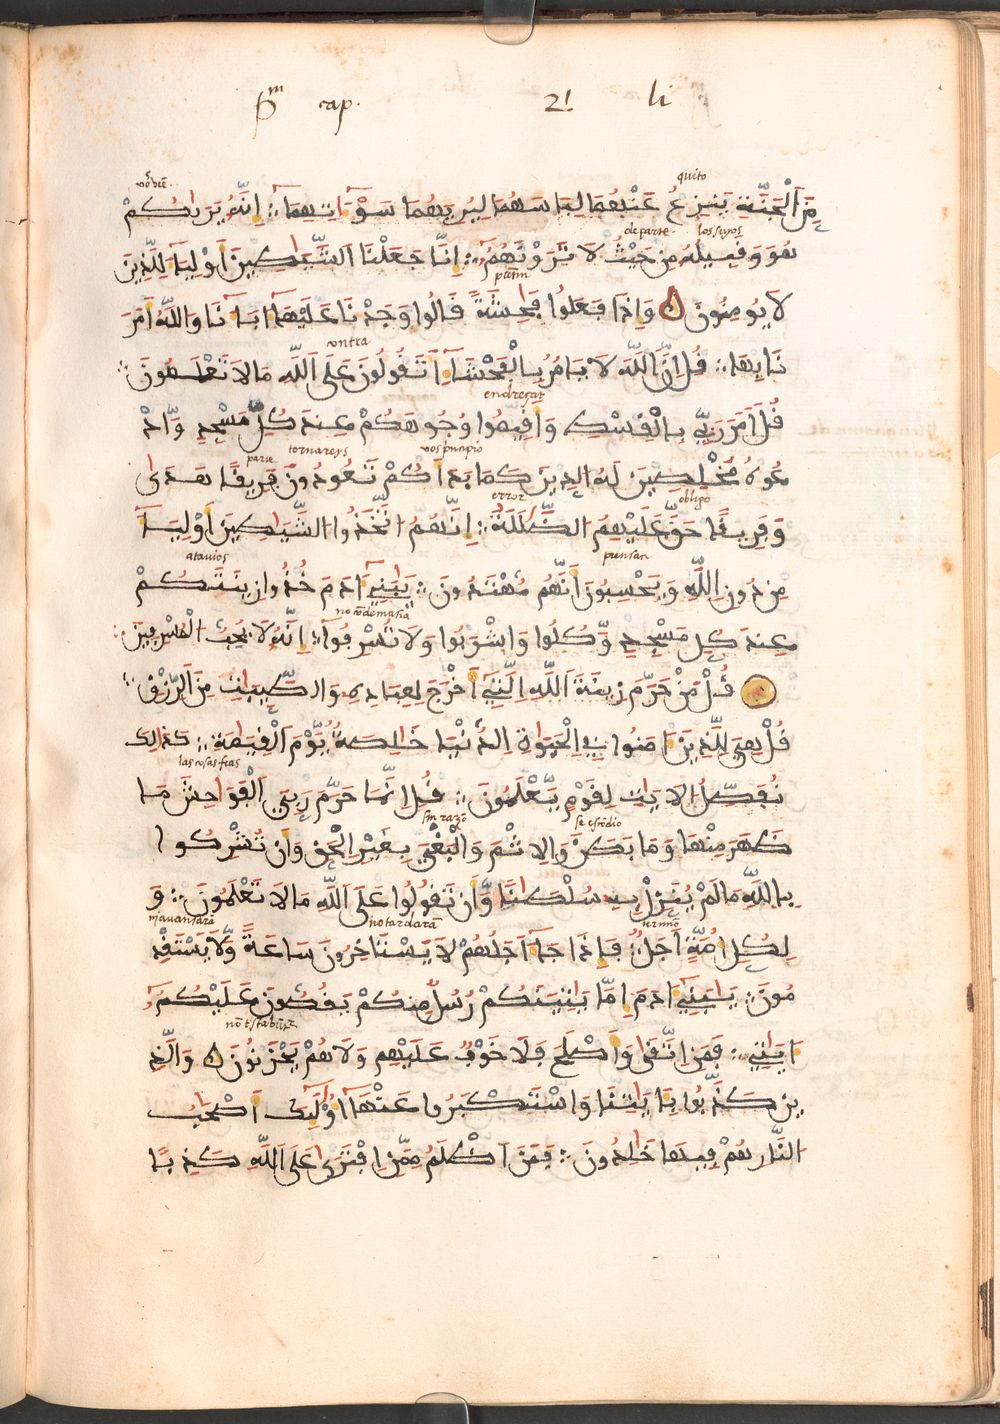 pm cap. 21 li
vos vee. quito
مِّنَ ٱلْجَنَّةِ يَنزِعُ عَنْهُمَا لِبَاسَهُمَا لِيُرِيَهُمَا سَوْءَٰتِهِمَآ ؞ إِنَّهُۥ يَرَىٰكُمْ
de parte los suyos
هُوَ وَقَبِيلُهُۥ مِنْ حَيْثُ لَا تَرَوْنَهُمْ ؞ إِنَّا جَعَلْنَا ٱلشَّيَٰطِينَ أَوْلِيَآءَ لِلَّذِينَ
لَا يُومِنُونَ وَإِذَا فَعَلُوا فَٰحِشَةً قَالُوا وَجَدْنَا عَلَيْهَآ ءَابَآءَنَا وَٱللَّهُ أَمَرَ
contra
نَا بِهَا ؞ قُلْ إِنَّ ٱللَّهَ لَا يَامُرُ بِٱلْفَحْشَآءِ أَتَقُولُونَ عَلَى ٱللَّهِ مَا لَا تَعْلَمُونَ ؞
endreçar
قُلْ أَمَرَ رَبِّي بِٱلْقِسْطِ وَأَقِيمُوا وُجُوهَكُمْ عِندَ كُلِّ مَسْجِدٍ وَٱدْ
parte tornareys vos principio
عُوهُ مُخْلِصِينَ لَهُ ٱلدِّينَ كَمَا بَدَأَكُمْ تَعُودُونَ فَرِيقًا هَدَىٰ
error obligo
وَفَرِيقًا حَقَّ عَلَيْهِمُ ٱلضَّلَٰلَةُ ؞ إِنَّهُمُ ٱتَّخَذُوا ٱلشَّيَٰطِينَ أَوْلِيَآءَ
atavios pensan
مِن دُونِ ٱللَّهِ وَيَحْسِبُونَ أَنَّهُم مُّهْتَدُونَ ؞ يَٰبَنِيٓ ءَادَمَ خُذُوا زِينَتَكُمْ
no cō demasia
عِندَ كُلِّ مَسْجِدٍ وَّكُلُوا وَٱشْرَبُوا وَلَا تُسْرِفُوٓا ؞ إِنَّهُۥ لَا يُحِبُّ ٱلْمُسْرِفِينَ ؞
قُلْ مَنْ حَرَّمَ زِينَةَ ٱللَّهِ ٱلَّتِيٓ أَخْرَجَ لِعِبَادِهِۦ وَٱلطَّيِّبَٰتِ مِنَ ٱلرِّزْقِ ؞
قُلْ هِيَ لِلَّذِينَ ءَامَنُوا فِي ٱلْحَيَوٰةِ ٱلدُّنْيَا خَالِصَةٌ يَّوْمَ ٱلْقِيَٰمَةِ ؞ كَذَٰلِكَ
las cosas feas
نُفَصِّلُ ٱلْأيَٰتِ لِقَوْمٍ يَّعْلَمُونَ ؞ قُلْ إِنَّمَا حَرَّمَ رَبِّيَ ٱلْفَوَٰحِشَ مَا
sin razō se escōdio
ظَهَرَ مِنْهَا وَمَا بَطَنَ وَٱلْإِثْمَ وَٱلْبَغْيَ بِغَيْرِ ٱلْحَقِّ وَأَن تُشْرِكُوا
بِٱللَّهِ مَا لَمْ يُنَزِّلْ بِهِۦ سُلْطَٰنًا وَّأَن تَقُولُوا عَلَى ٱللَّهِ مَا لَا تَعْلَمُونَ ؞ وَ
ni avansara no tardarā
لِكُلِّ أُمَّةٍ أَجَلٌ ؞ فَإِذَا جَآءَ اجَلُهُمْ لَا يَسْتَاخِرُونَ سَاعَةً وَّلَا يَسْتَقْدِ
مُونَ ؞ يَٰبَنِيٓ ءَادَمَ إِمَّا يَاتِيَنَّكُمْ رُسُلٌ مِّنكُمْ يَقُصُّونَ عَلَيْكُمُۥٓ
ءَايَٰتِي ؞ فَمَنِ ٱتَّقَىٰ وَأَصْلَحَ فَلَا خَوْفٌ عَلَيْهِمْ وَلَا هُمْ يَحْزَنُونَ وَٱلَّذِ
ينَ كَذَّبُوا بِـَٔايَٰتِنَا وَٱسْتَكْبَرُوا عَنْهَآ أُوْلَٰٓئِكَ أَصْحَٰبُ
ٱلنَّارِ هُمْ فِيهَا خَٰلِدُونَ ؞ فَمَنَ ٱظْلَمُ مِمَّنِ ٱفْتَرَىٰ عَلَى ٱللَّهِ كَذِبًا